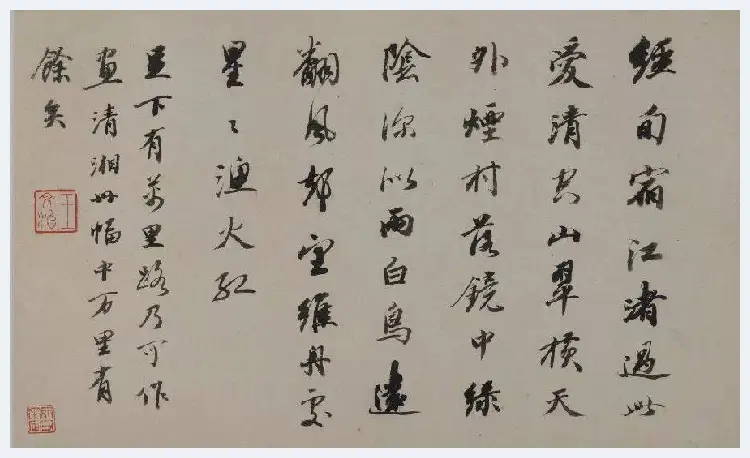 經旬宿江渚過此
愛清空山翠橫天
外煙村落鏡中綠
陰深似雨白鳥遠
翻風却望維舟處
星〻漁火紅
足下有萬里路乃可作
畫清湘此幅中万里有
餘矣